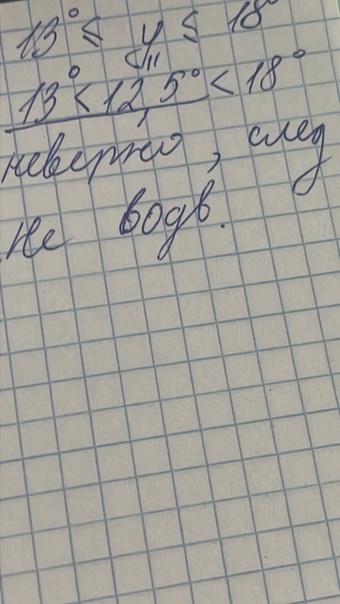 13° ≤ φ ≤ 18°
13° < 12,5° < 18°
неверно, след
не водв.